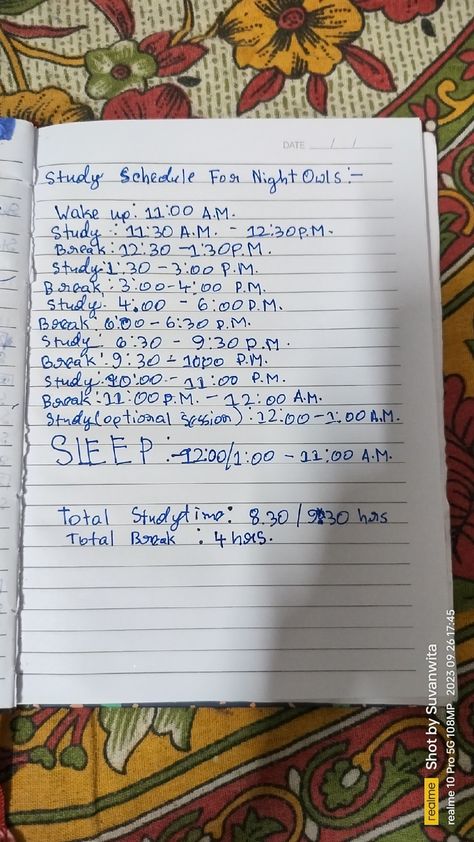 DATE __/__/__
Study Schedule For Night Owls :-
Wake up: 11:00 A.M.
Study : 11:30 A.M. - 12:30 P.M.
Break: 12:30 - 1:30 P.M.
Study: 1:30 - 3:00 P.M.
Break: 3:00 - 4:00 P.M.
Study: 4:00 - 6:00 P.M.
Break: 6:00 - 6:30 P.M.
Study: 6:30 - 9:30 P.M.
Break: 9:30 - 10:00 P.M.
Study: 10:00 - 11:00 P.M.
Break: 11:00 P.M. - 12:00 A.M.
Study (optional session): 12:00 - 1:00 A.M.
SLEEP :- 12:00/1:00 - 11:00 A.M.
Total Study time: 8.30 / 9:30 hrs
Total Break : 4 hrs.
realme Shot by Suvanwita
realme 10 Pro 5G 108MP 2023.09.26 17:45